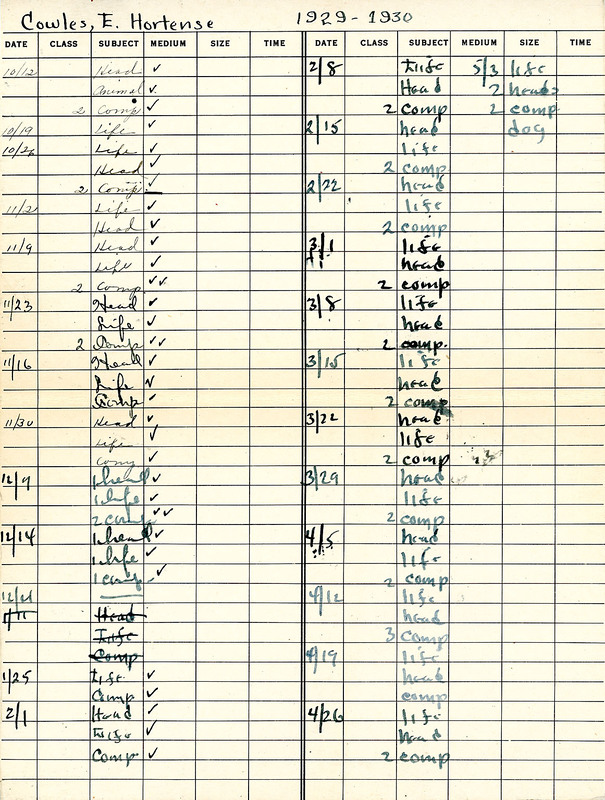 Cowles, E. Hortense 1929-1930
DATE CLASS SUBJECT MEDIUM SIZE TIME DATE CLASS SUBJECT MEDIUM SIZE TIME
10/12 Head ✓
Animal ✓
2 Comp ✓
10/19 Life ✓
10/26 Life ✓
Head ✓
2 Comp ✓
11/2 Life ✓
Head ✓
11/9 Head ✓
Life ✓
2 Comp ✓✓
11/23 Head ✓
Life ✓
2 Comp ✓✓
11/16 Head ✓
Life ✓
Comp ✓
11/30 Head ✓
Life ✓
Comp ✓
12/7 1 head ✓
1 life ✓
2 comp ✓✓
12/14 1 head ✓
1 life ✓
1 comp ✓
12/21
1/11 Head
Life
Comp
1/25 Life ✓
Comp ✓
2/1 Head ✓
Life ✓
Comp ✓
2/8 Life 5/3 life
Head 2 heads
2 comp 2 comp
2/15 head dog
life
2 comp
2/22 head
life
2 comp
3/1 life
head
2 comp
3/8 life
head
2 comp.
3/15 life
head
2 comp
3/22 head
life
2 comp
3/29 head
life
2 comp
4/5 head
life
2 comp
4/12 life
head
3 comp
4/19 life
head
comp
4/26 life
head
2 comp